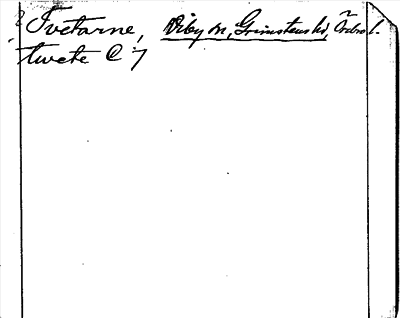 Tvetarne, Viby sn, Grimstens hd, Örebro l.
twete C 7